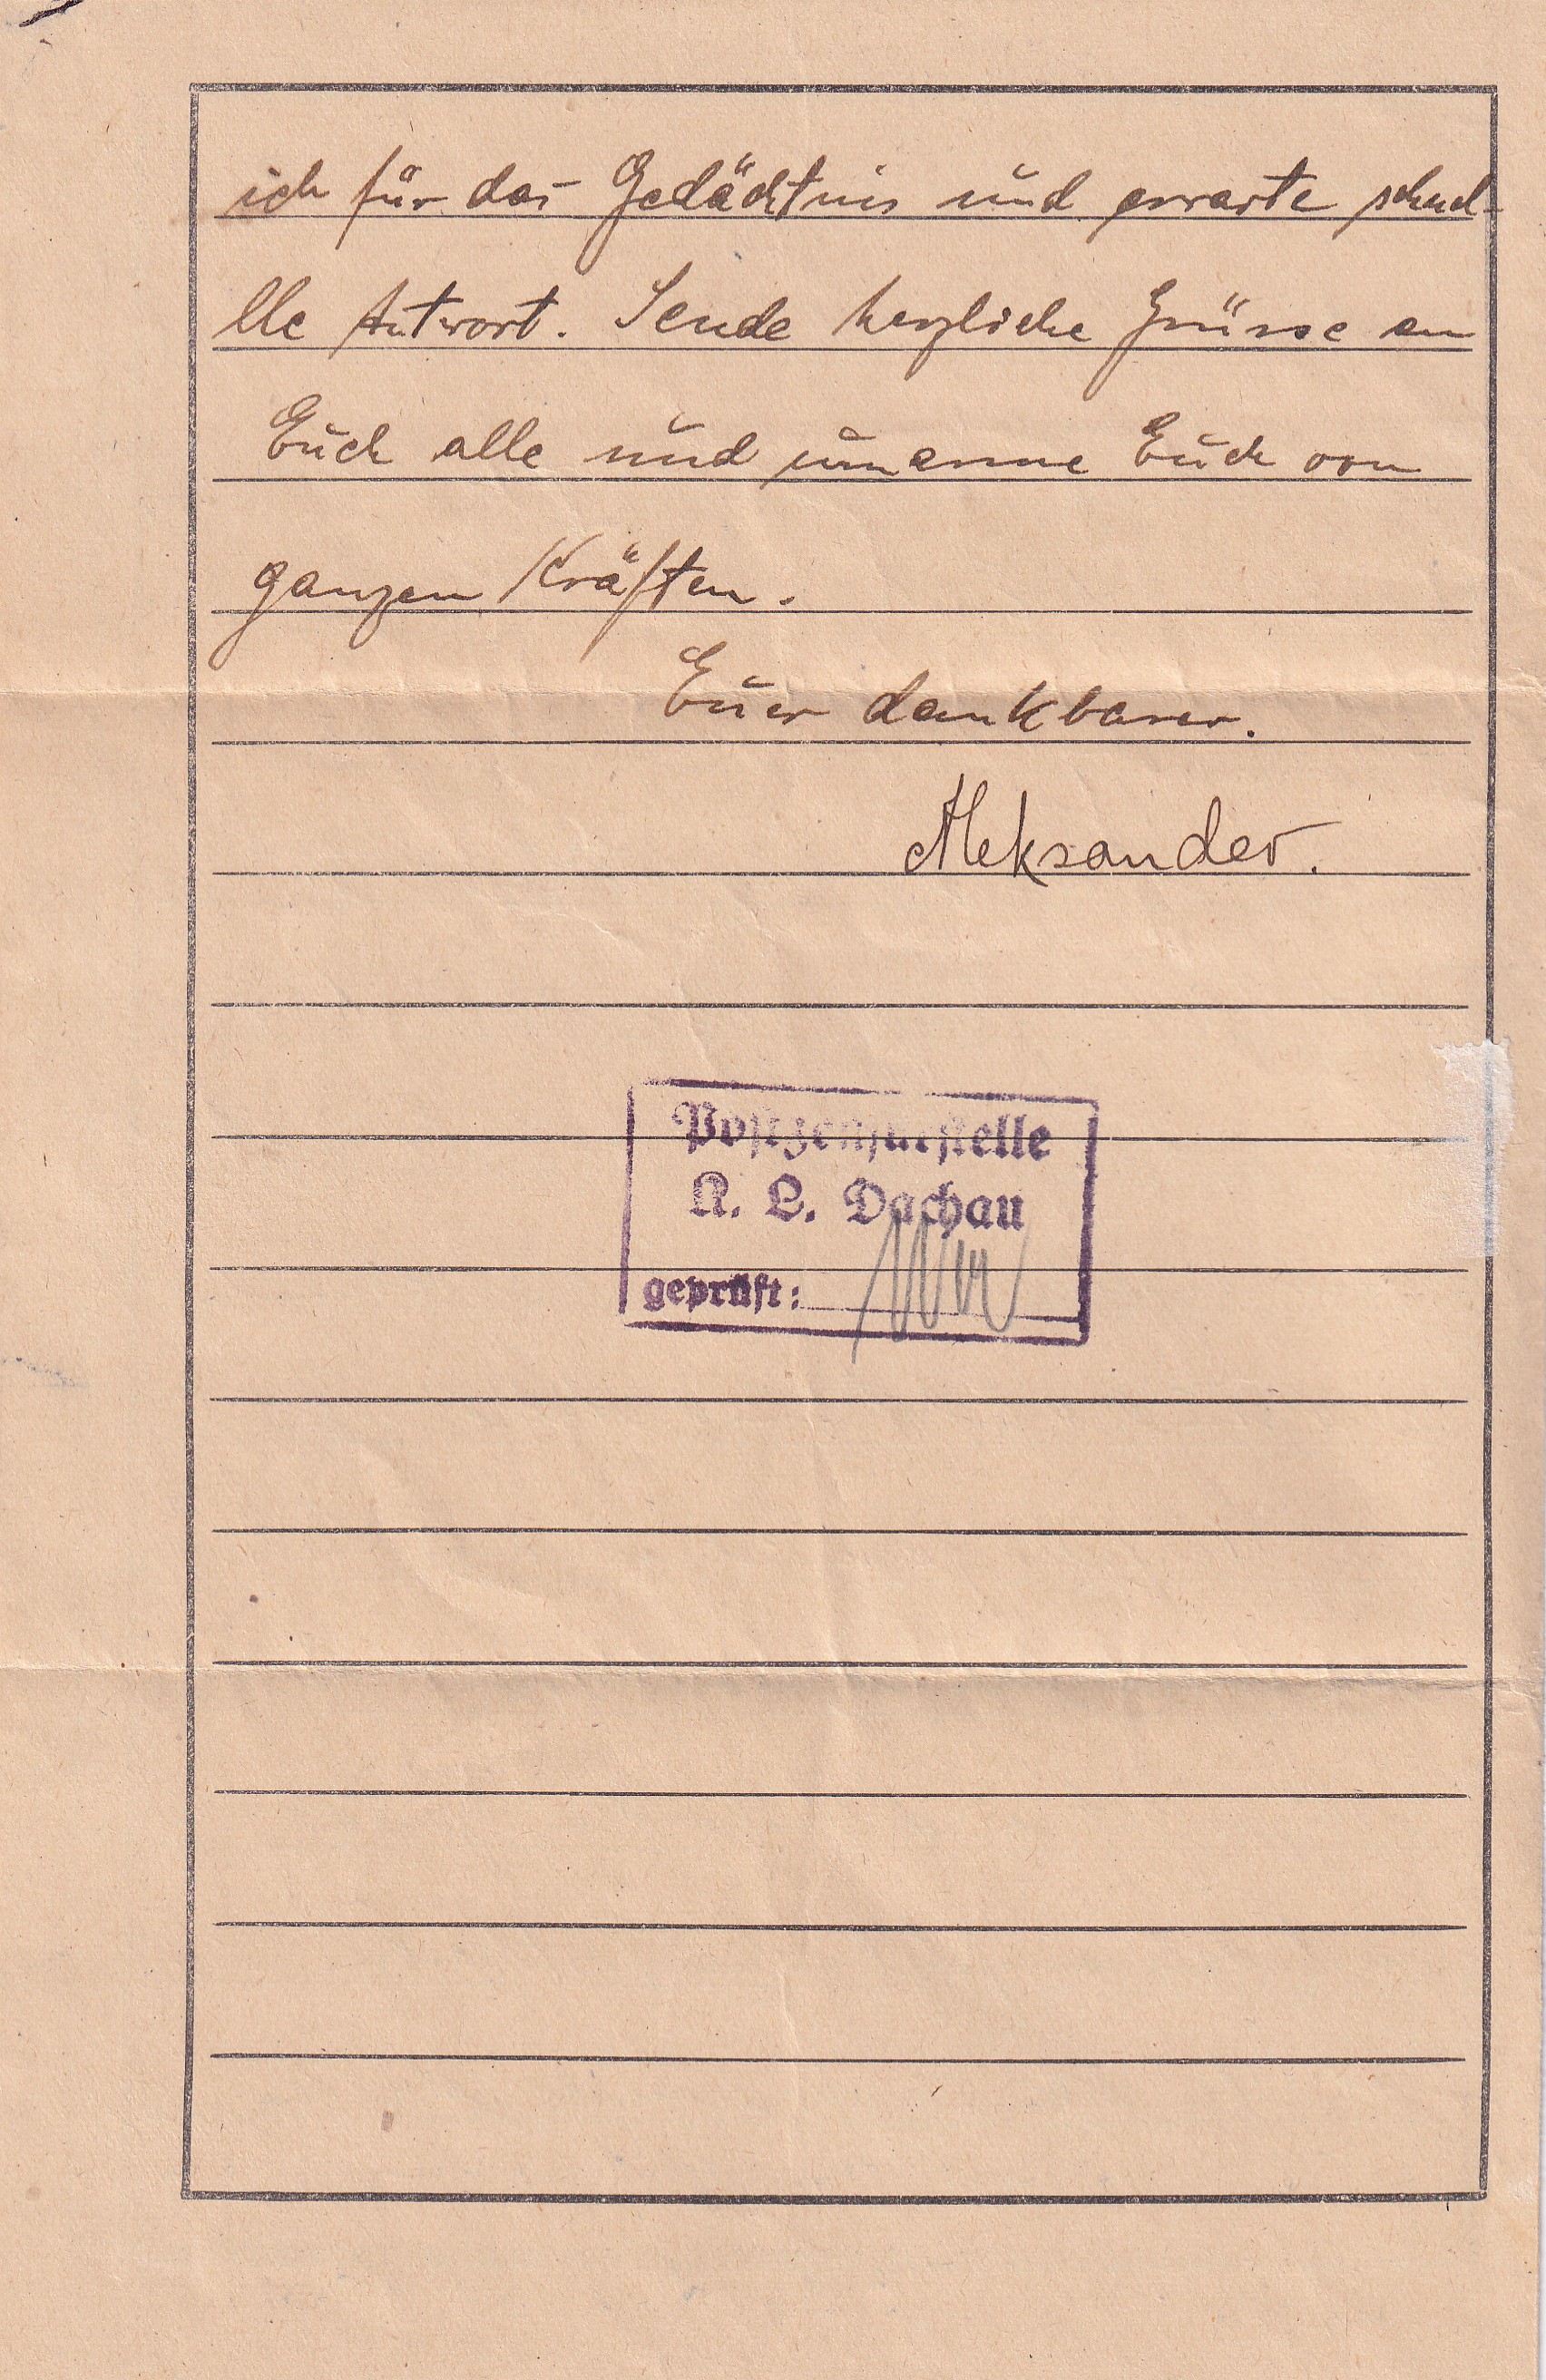 ich für das Gedächtnis und erwarte schnel-
lle Antwort. Sende herzliche Grüsse an
Euch alle und umarme Euch von
ganzen Kräften.
Euer dankbarer.
Aleksander.
Postzensurstelle
K. L. Dachau
geprüft: